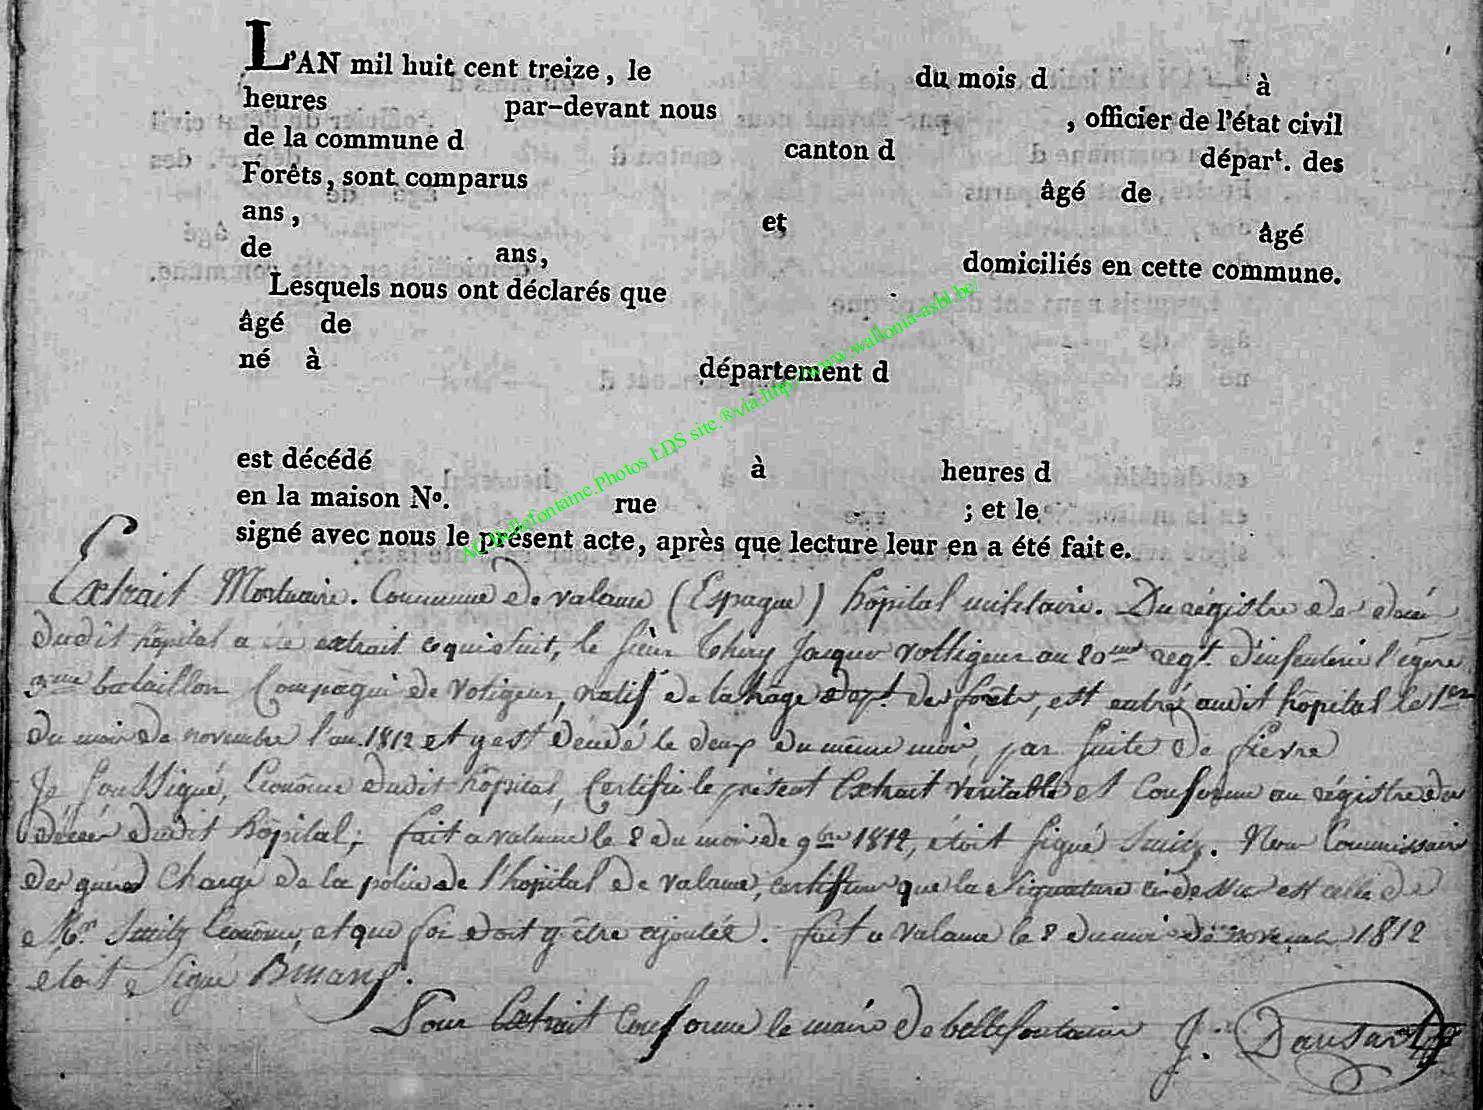 L'AN mil huit cent treize, le du mois d à
heures par-devant nous , officier de l'état civil
de la commune d canton d départ. des
Forêts, sont comparus âgé de
ans, et âgé
de ans, domiciliés en cette commune.
Lesquels nous ont déclarés que
âgé de
né à département d
est décédé à heures d
en la maison No. rue ; et le
signé avec nous le présent acte, après que lecture leur en a été faite.
AC Bellefontaine.Photos LDS site.®via:http://www.wallonia-asbl.be/
Extrait Mortuaire. Commune de valance (Espagne) hôpital militaire. Du régistre des
dudit hôpital a été extrait ce qui suit, le sieur Thiry Jacques voltigeur au regt. d'infanterie légere
3me bataillon Compagnie de Voltigeur, natif de lahage dept. des forêts, est entré audit hôpital le 1er
du mois de novembre l'an 1812 et y est décédé le deux du même mois, par suite de fievre
Je soussigné, Econôme dudit hôpital, Certifie le présent Extrait véritable et Conforme au régistre des
décès dudit hôpital; fait a valance le 8 du mois de 9bre 1812, étoit signé Smitz. Nous Commissaire
des guerres Chargé de la police de l'hôpital de valance, certifions que la signature ci dessus est celle de
Mr. Smitz Econôme, et que foi doit y être ajoutée. fait a valance le 8 du mois de novembre 1812
etoit signé
Pour Extrait Conforme le maire de bellefontaine J. Dausart